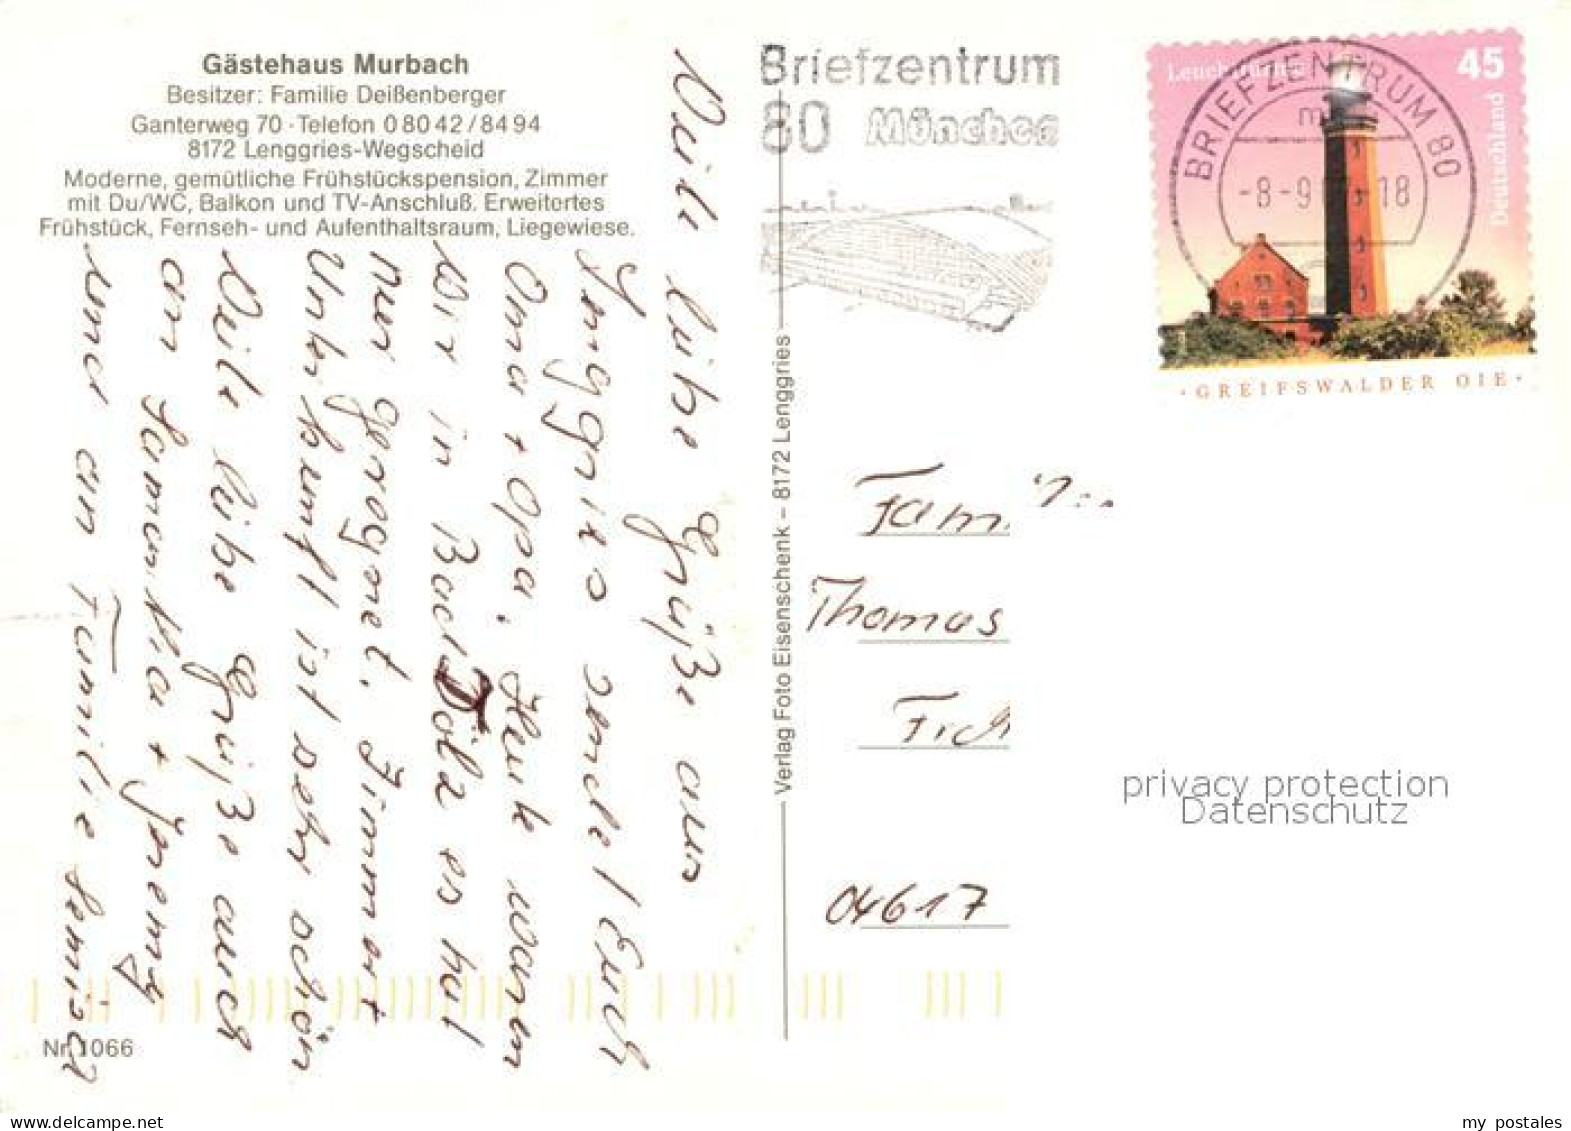 Gästehaus Murbach
Besitzer: Familie Deißenberger
Ganterweg 70 · Telefon 0 80 42 / 84 94
8172 Lenggries-Wegscheid
Moderne, gemütliche Frühstückspension, Zimmer
mit Du/WC, Balkon und TV-Anschluß. Erweitertes
Frühstück, Fernseh- und Aufenthaltsraum, Liegewiese.
Viele liebe Grüße aus
Lenggries sendet Euch
Oma + Opa. Heute waren
wir in Bad Tölz es hat
nur geregnet. Zimmer +
Unterkunft ist sehr schön
Viele liebe Grüße auch
an Samantha + Jeremy
und an Familie
Nr. 1066
Verlag Foto Eisenschenk – 8172 Lenggries
Briefzentrum
80 München
Leuchttürme
45
Deutschland
BRIEFZENTRUM 80
-8-9 18
· GREIFSWALDER OIE ·
Fam.
Thomas
04617
privacy protection
Datenschutz
delcampe.net
my_postales